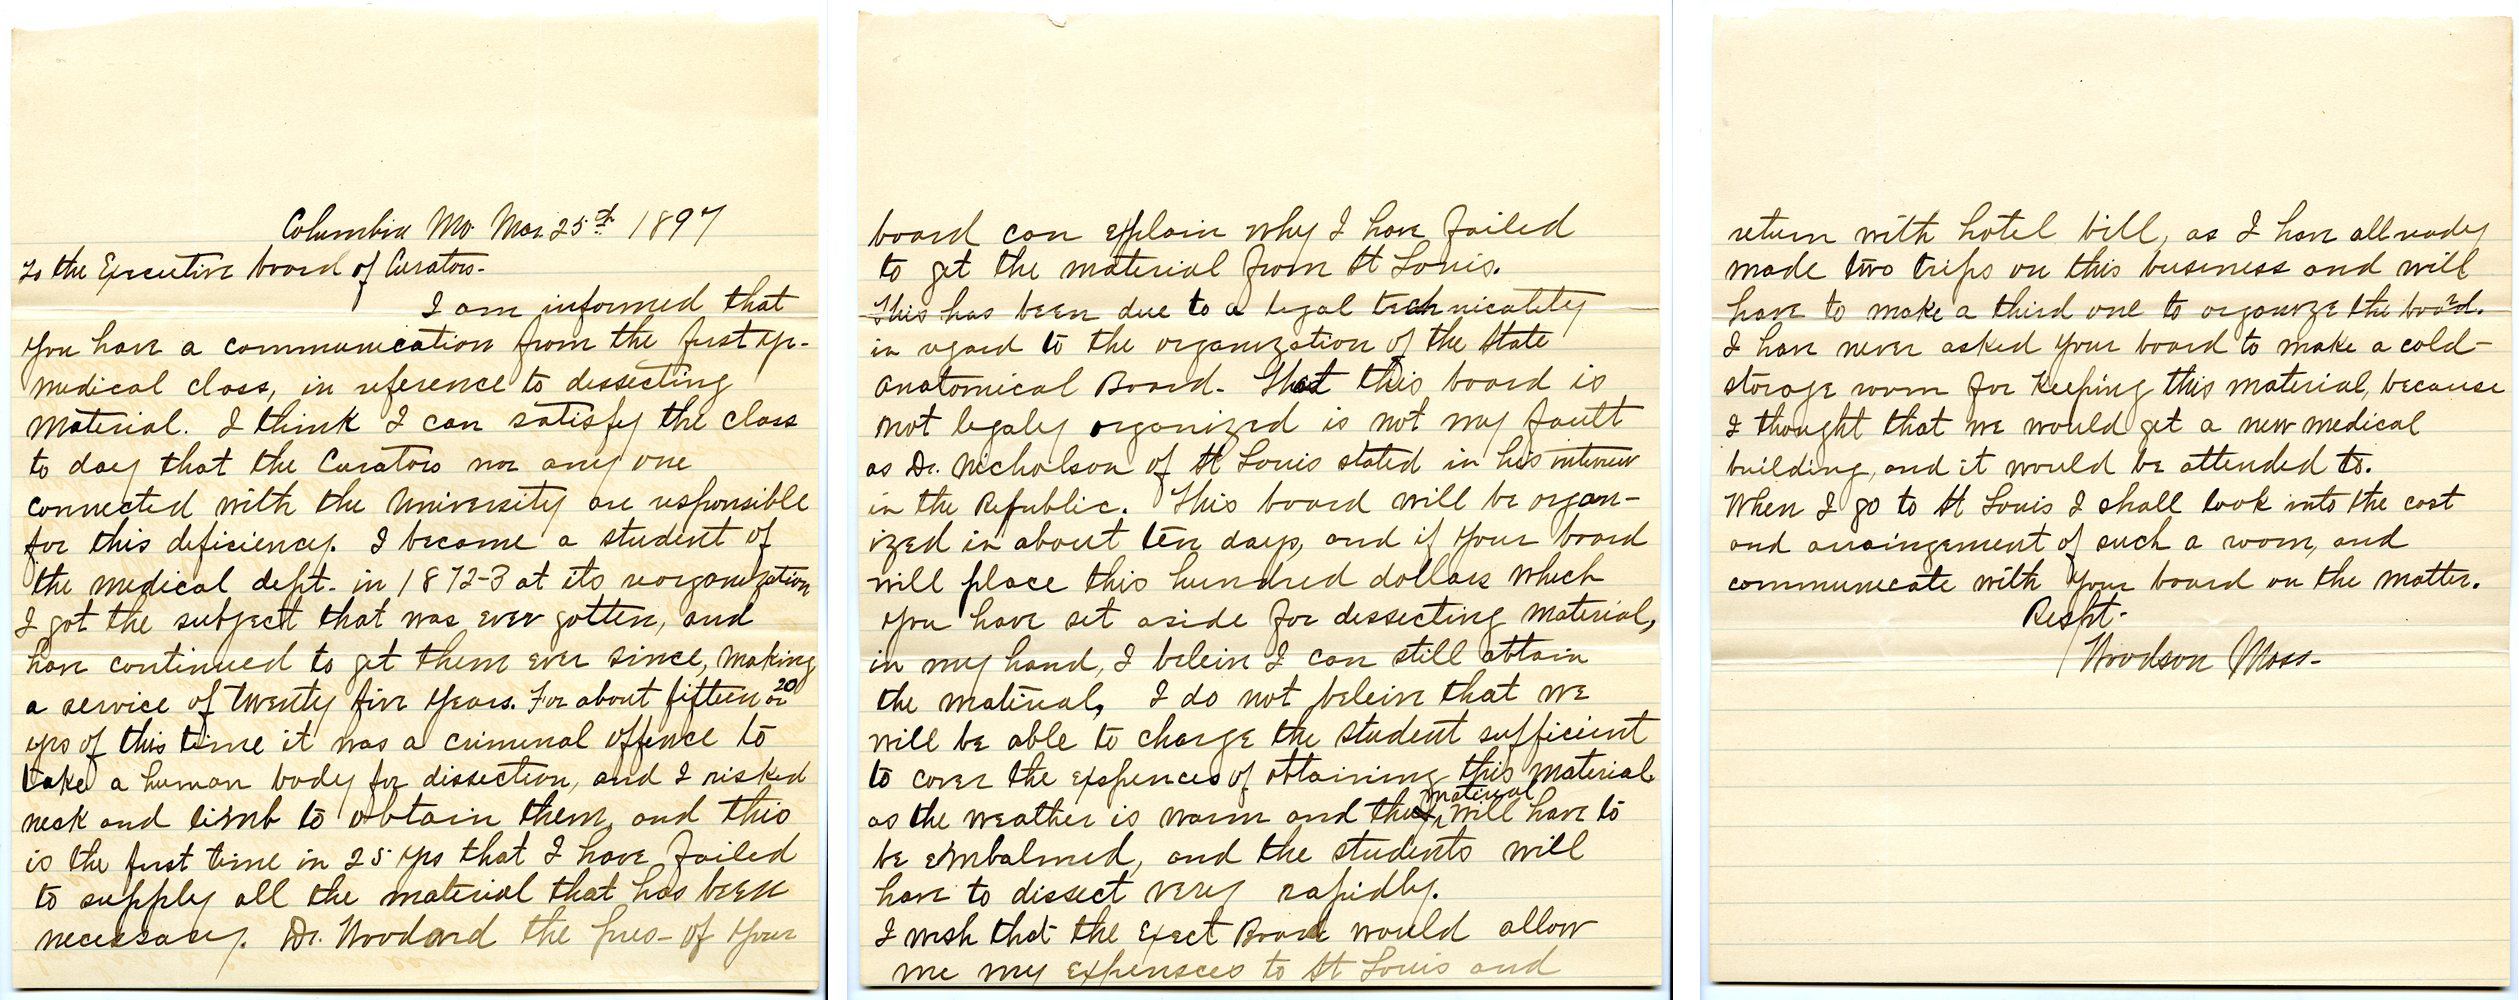 Columbia Mo. Mar. 25th 1897
To the Executive board of Curators-
I am informed that
you have a communication from the first yr-
medical class, in reference to dissecting
material. I think I can satisfy the class
to day that the Curators nor any one
connected with the University are responsible
for this deficiency. I became a student of
the medical dept. in 1872-3 at its reorganization
I got the subject that was ever gotten, and
have continued to get them ever since, making
a service of twenty five years. For about fifteen or 20
yrs of this time it was a criminal offence to
take a human body for dissection, and I risked
neck and limb to obtain them, and this
is the first time in 25 yrs that I have failed
to supply all the material that has been
necessary. Dr. Woodard the pres- of your
board can explain why I have failed
to get the material from St Louis.
This has been due to a legal technicality
in regard to the organization of the State
Anatomical Board- That this board is
not legaly organized is not my fault
as Dr. Nicholson of St Louis stated in his interview
in the Republic. This board will be organ-
ized in about ten days, and if your board
will place this hundred dollars which
you have set aside for dissecting material,
in my hand, I beleive I can still obtain
the material, I do not beleive that we
will be able to charge the student sufficient
to cover the expences of obtaining this material
as the weather is warm and the material will have to
be embalmed, and the students will
have to dissect very rapidly.
I wish that the Exect Board would allow
me my expensces to St Louis and
return with hotel bill, as I have allready
made two trips on this business and will
have to make a third one to organize the board.
I have never asked your board to make a cold-
storage room for keeping this material, because
I thought that we would get a new medical
building, and it would be attended to.
When I go to St Louis I shall look into the cost
and arraingement of such a room, and
communicate with your board on the matter.
Respt-
Woodson Moss-